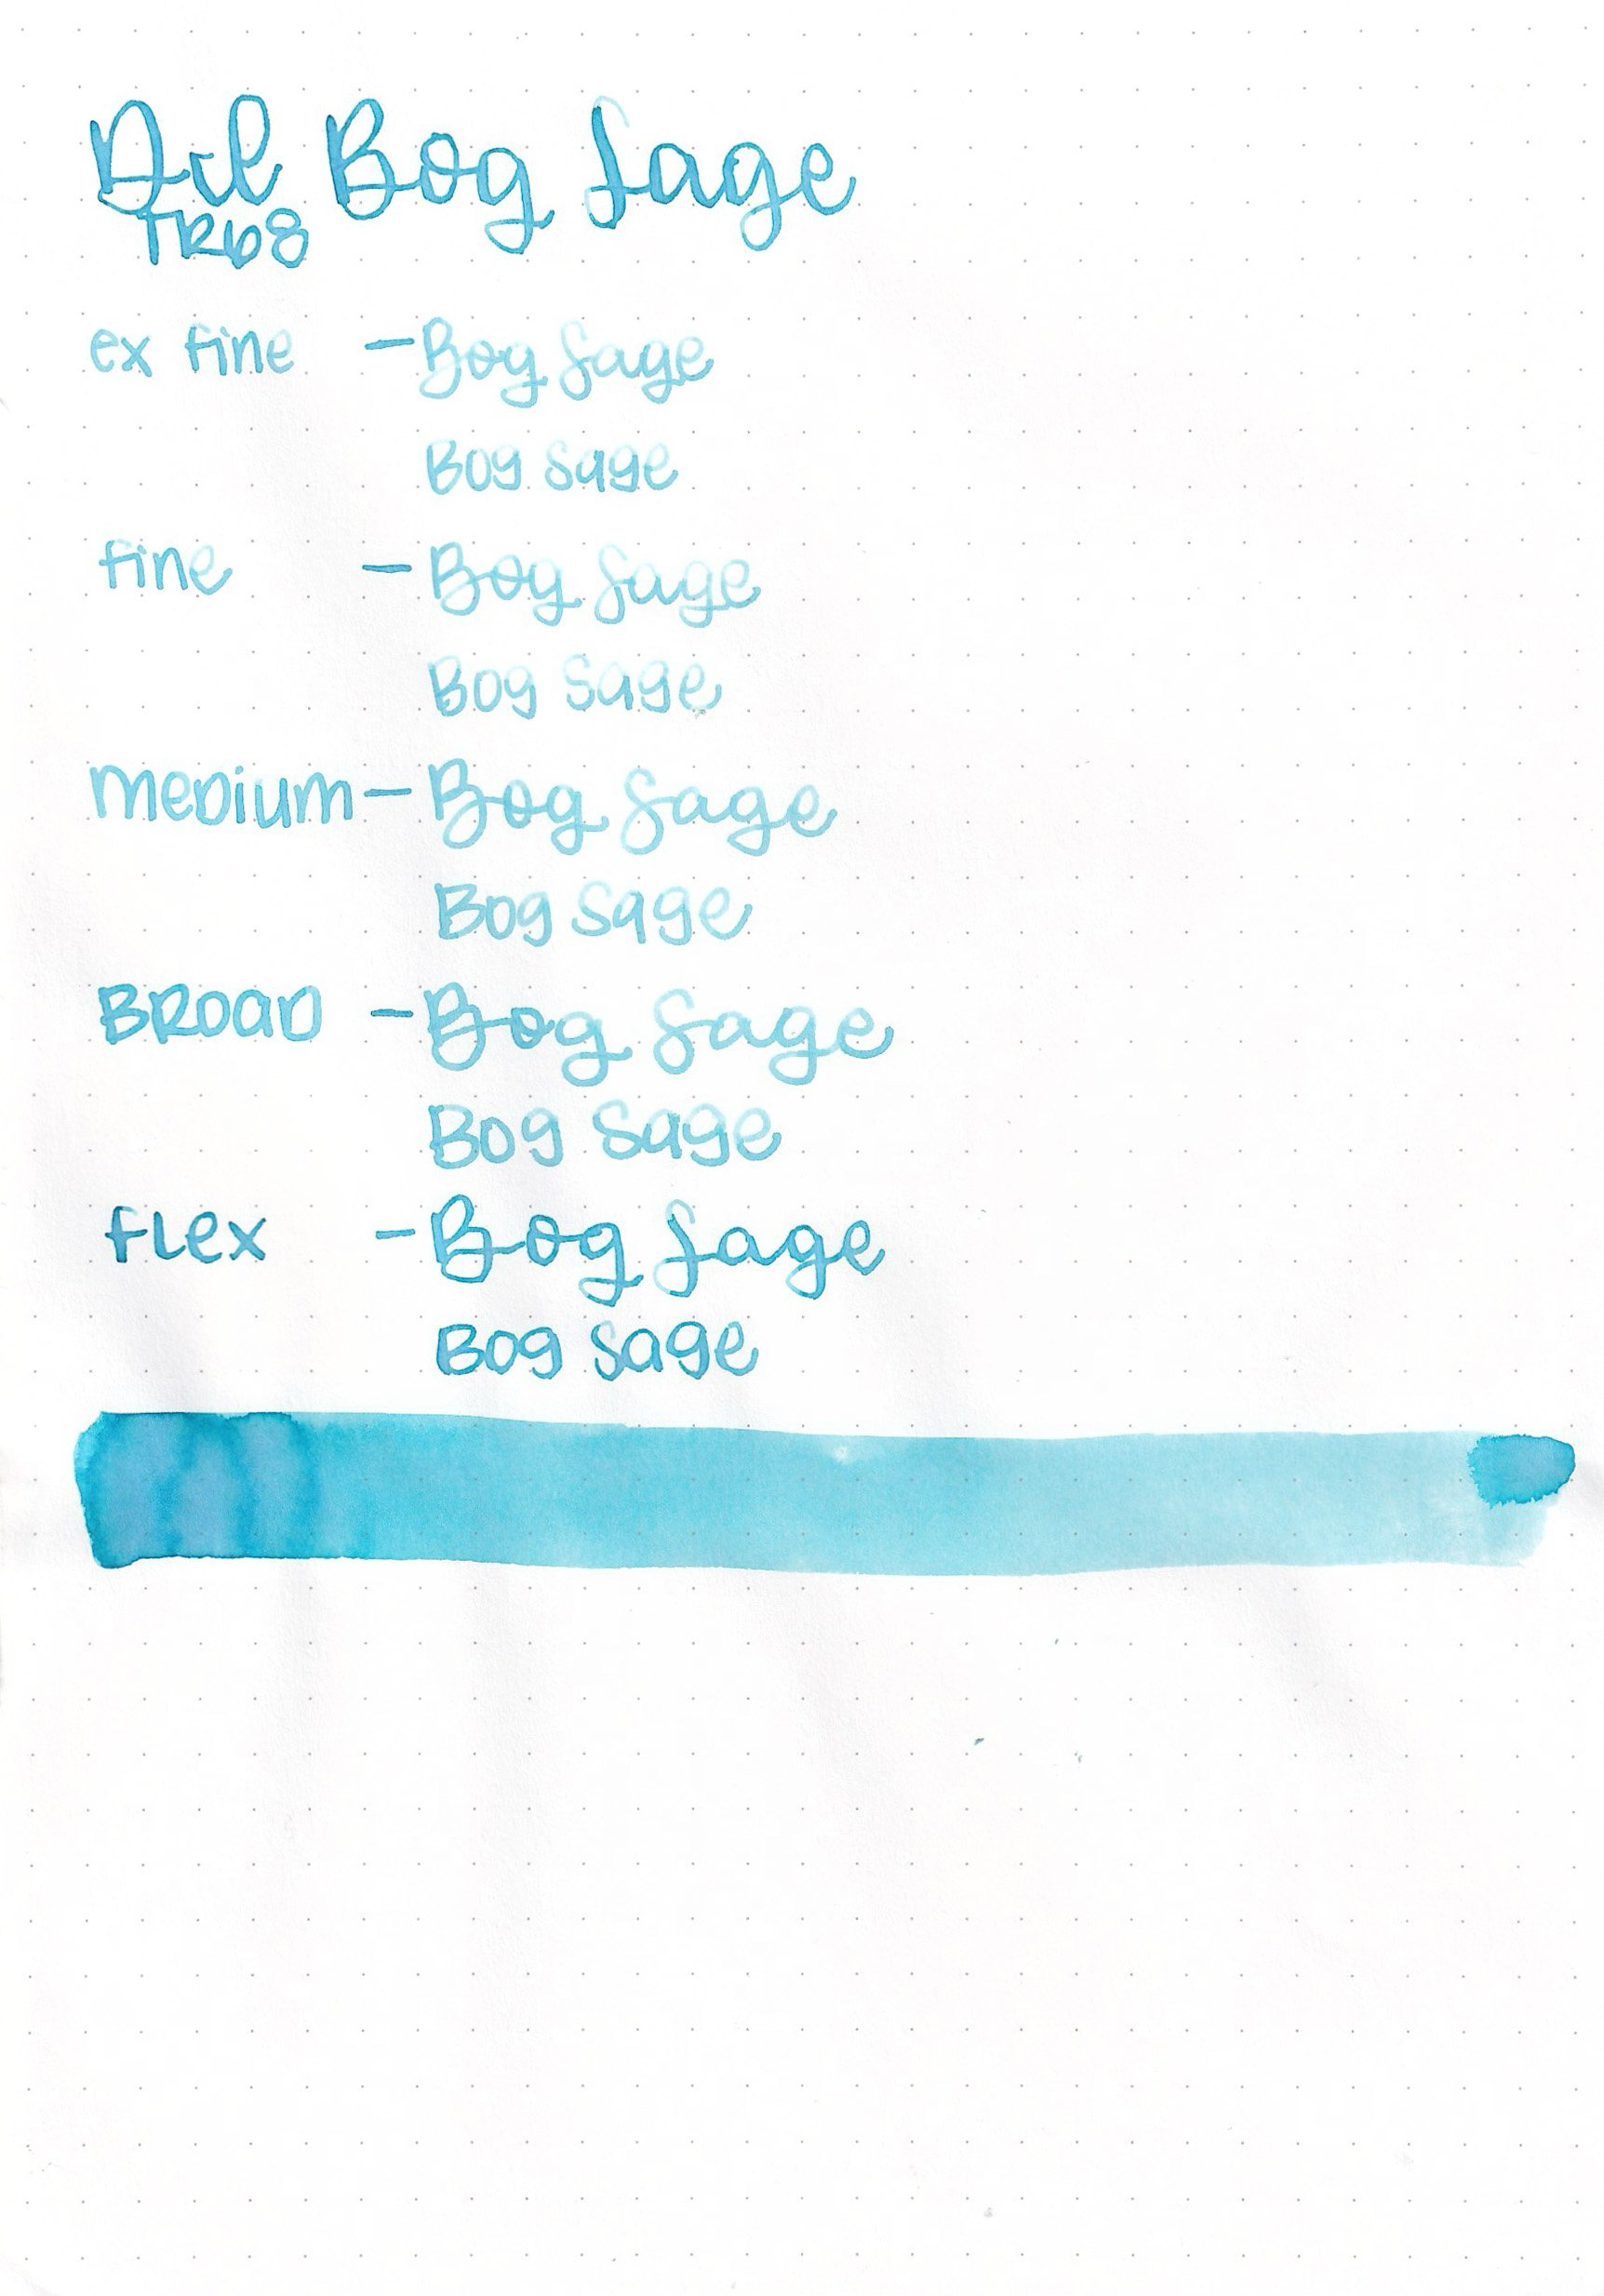 Bog Sage
TR68
ex fine — Bog Sage
Bog Sage
fine — Bog Sage
Bog Sage
medium — Bog Sage
Bog Sage
BROAD — Bog Sage
Bog Sage
flex — Bog Sage
Bog Sage